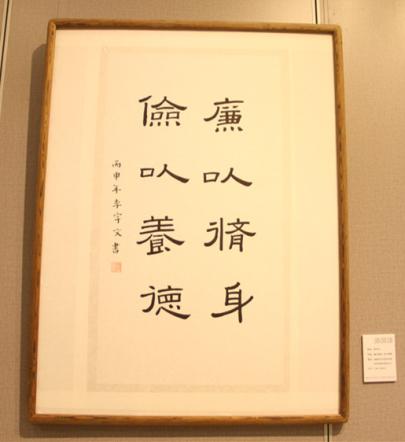 廉以脩身
儉以養德
丙申年李宇文書